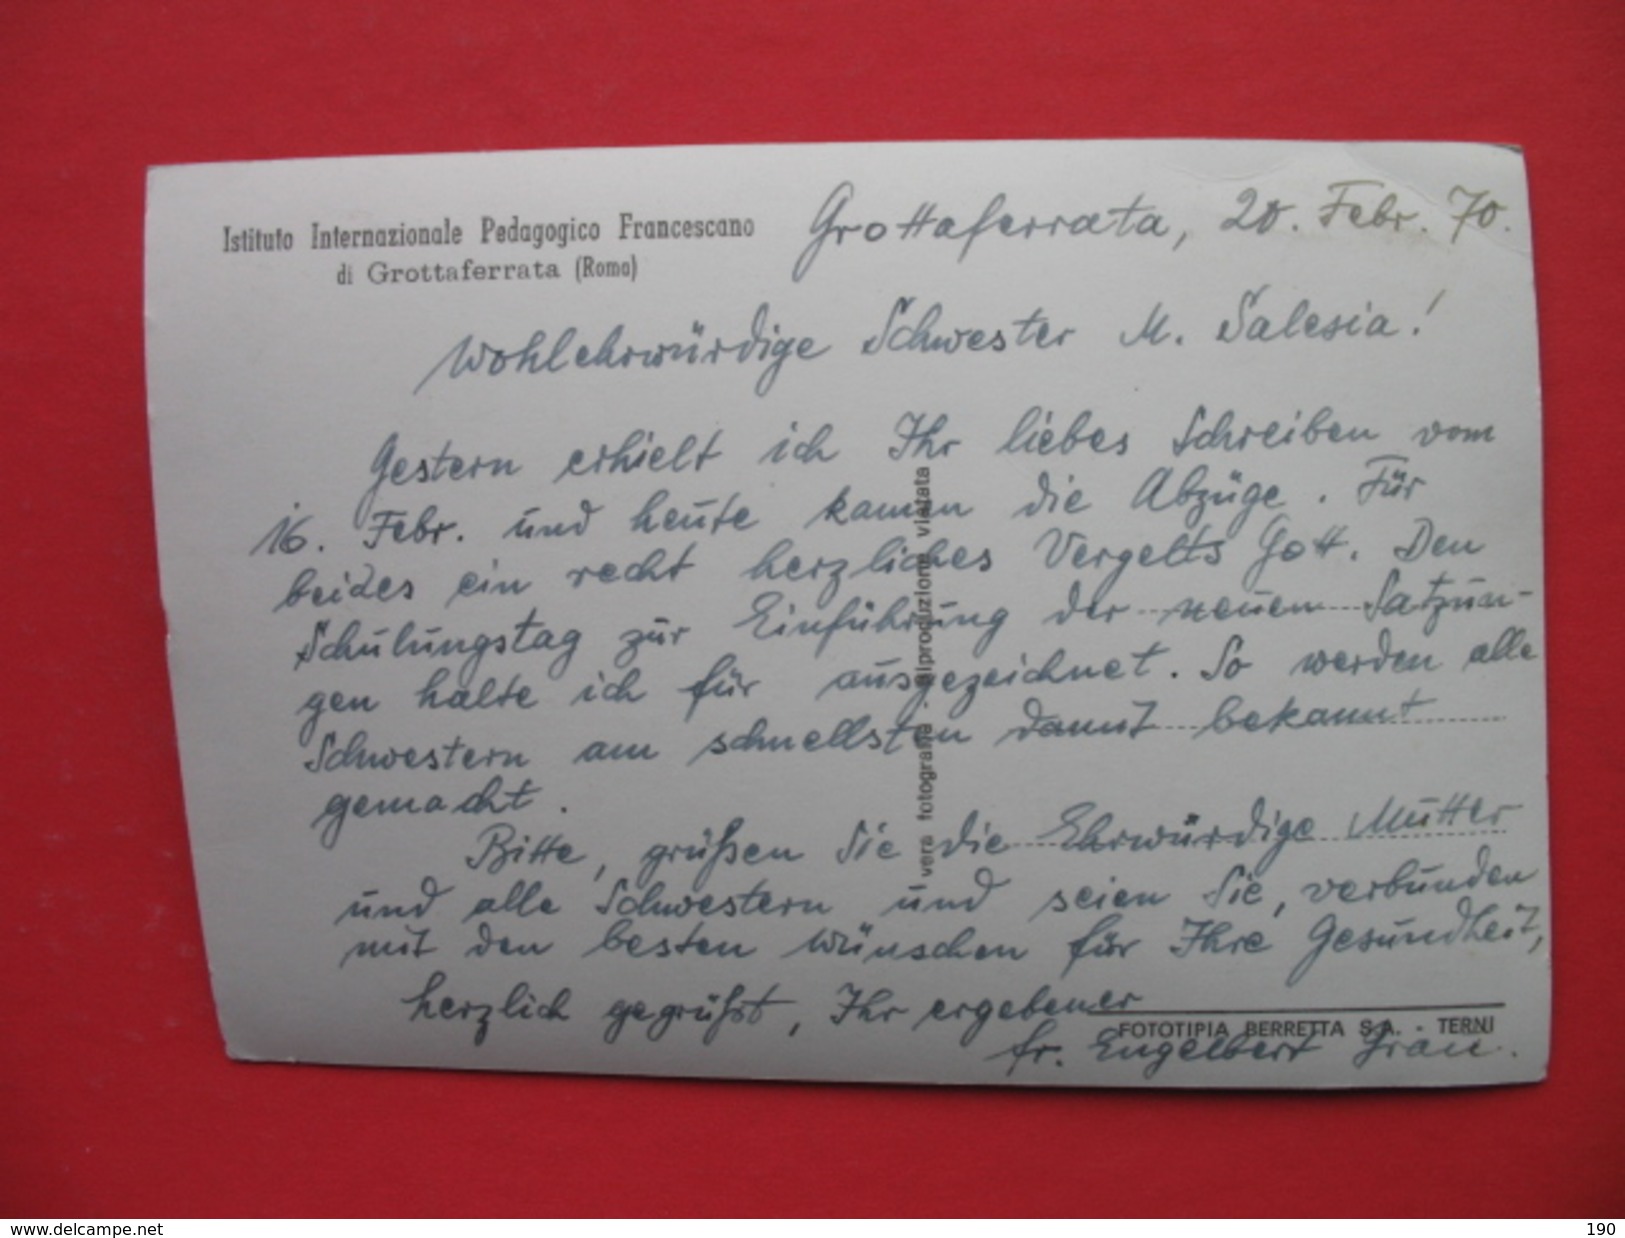 Istituto Internazionale Pedagogico Francescano
di Grottaferrata (Roma)
Grottaferrata, 20. Febr. 70.
Wohlehrwürdige Schwester M. Salesia!
Gestern erhielt ich Ihr liebes Schreiben vom
16. Febr. und heute kamen die Abzüge. Für
beides ein recht herzliches Vergelts Gott. Den
Schulungstag zur Einführung der neuen Satzun-
gen halte ich für ausgezeichnet. So werden alle
Schwestern am schnellsten damit bekannt
gemacht.
Bitte, grüßen Sie die Ehrwürdige Mutter
und alle Schwestern und seien Sie, verbunden
mit den besten Wünschen für Ihre Gesundheit,
herzlich gegrüßt, Ihr ergebener
fr. Engelbert Grau.
vera fotografia - riproduzione vietata
FOTOTIPIA BERRETTA S.A. - TERNI
www.delcampe.net
190